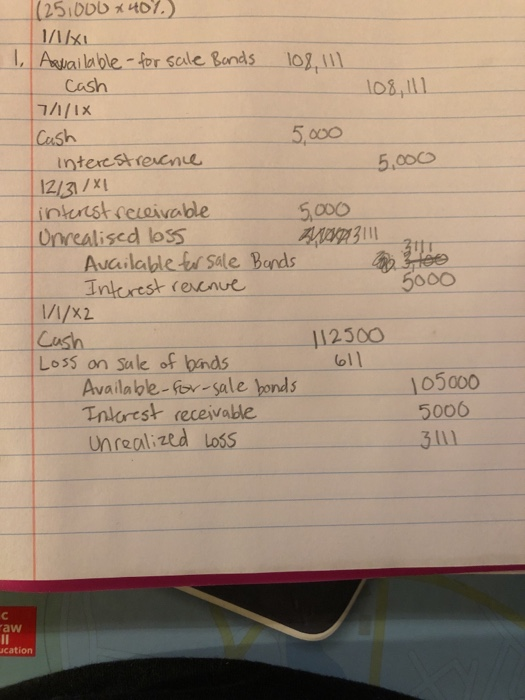 (251000 x 40%.)
1/1/x1
1. Available-for sale Bonds 108,111
Cash 108,111
7/1/1x
Cash 5,000
interest revenue 5,000
12/31/x1
interest receivable 5,000
Unrealised loss 3111
Available for sale Bonds 3111
Interest revenue 5000
1/1/x2
Cash 112500
Loss on sale of bonds 611
Available-for-sale bonds 105000
Interest receivable 5000
Unrealized Loss 3111
c
raw
ll
ucation